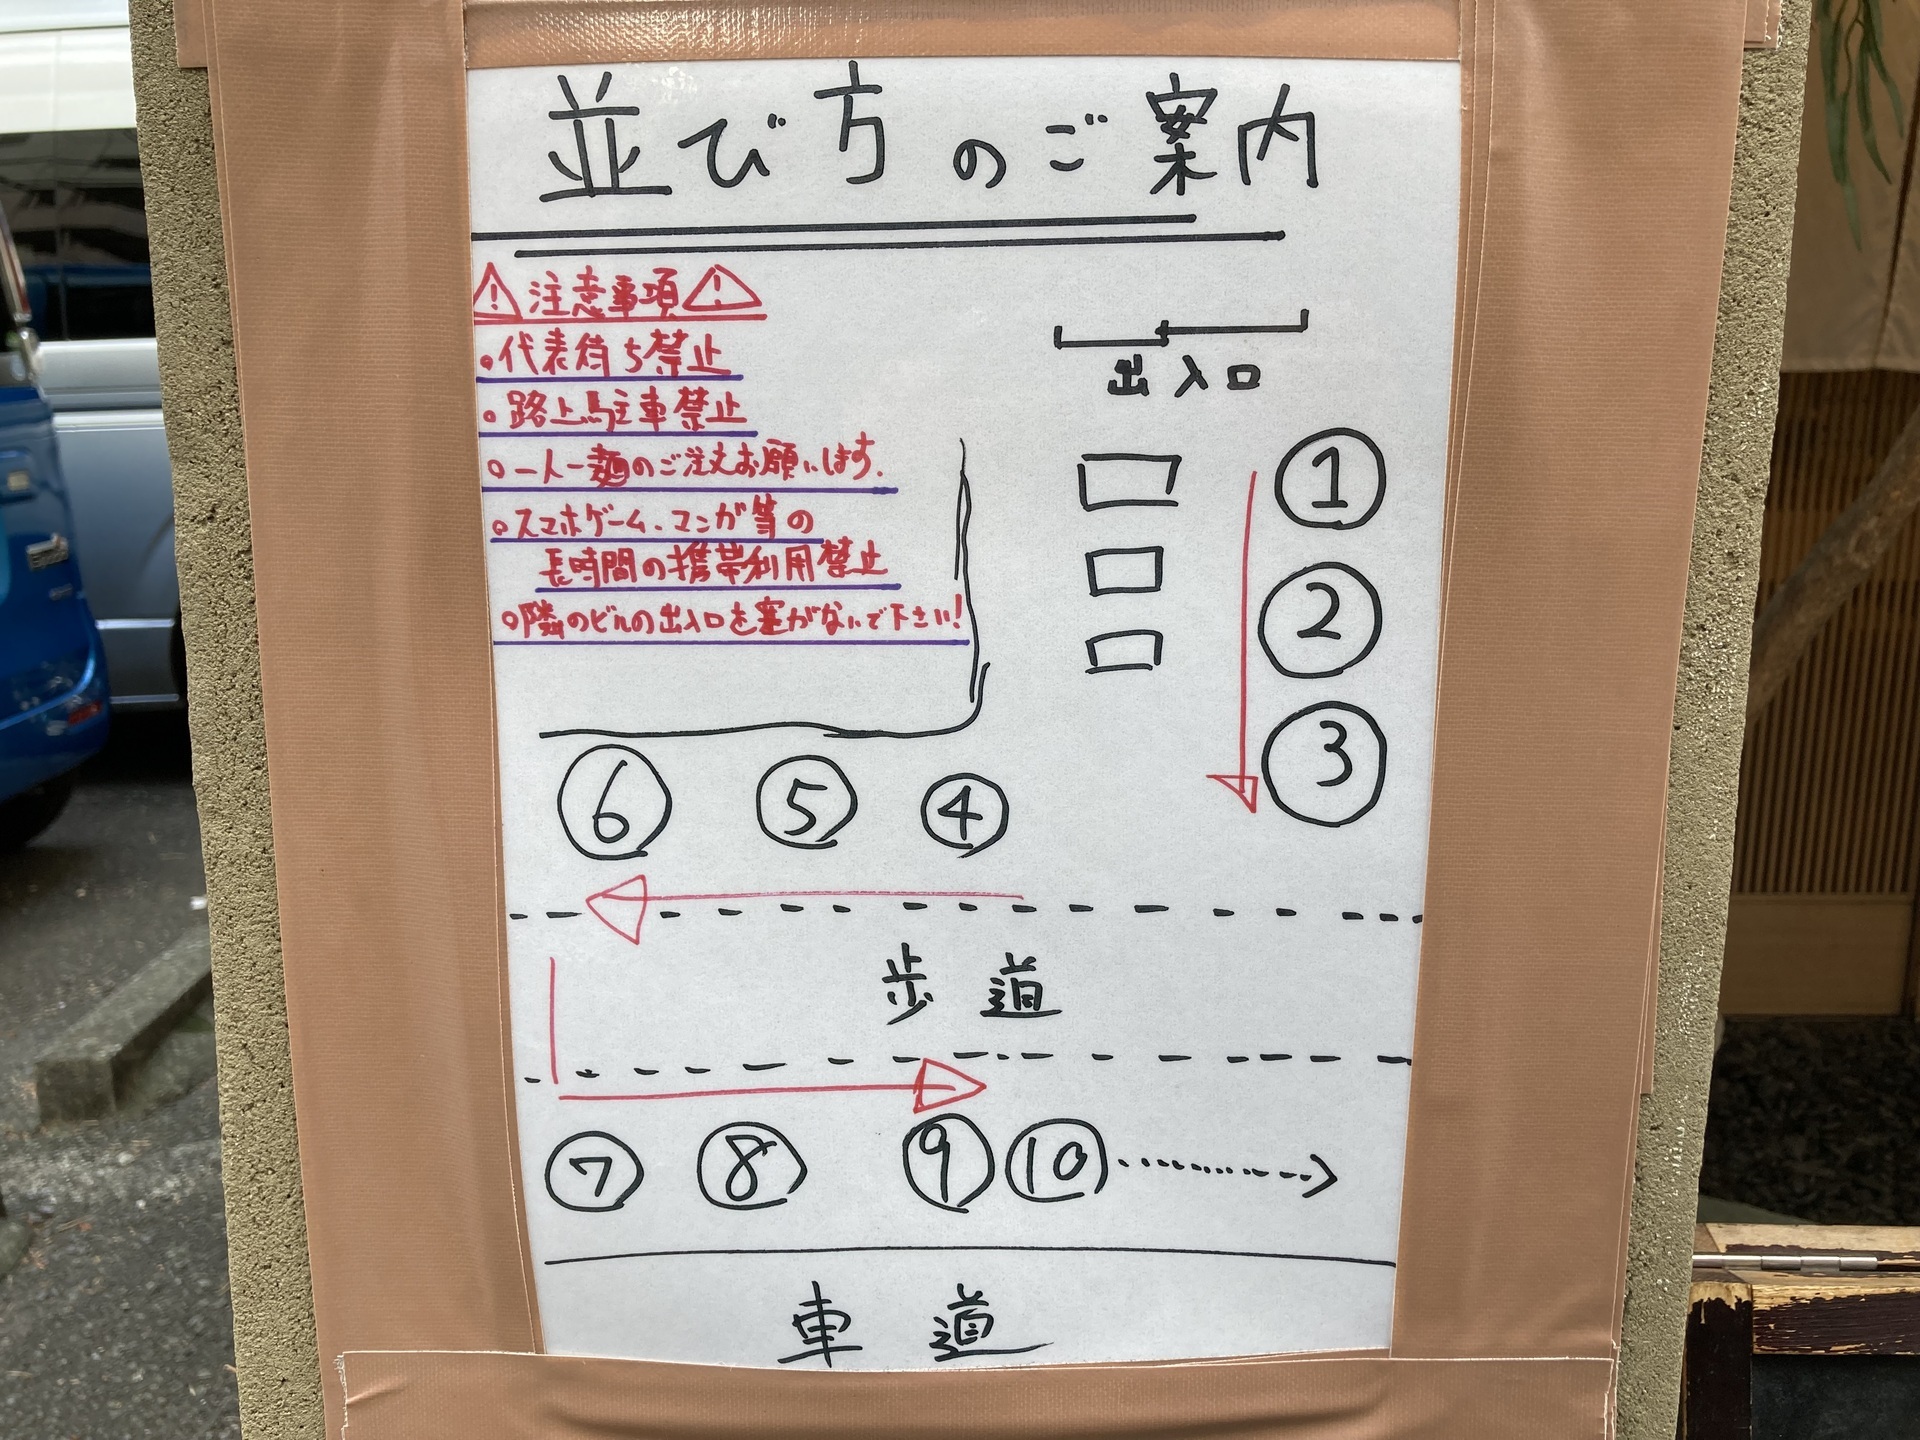 並び方のご案内
注意事項
・代表待ち禁止
・路上駐車禁止
・一人一麺のご注文お願いします。
・スマホゲーム、マンガ等の
長時間の携帯利用禁止
・隣のビルの出入口を塞がないで下さい!
出入口
①
②
③
⑥ ⑤ ④
歩道
⑦ ⑧ ⑨ ⑩
車道